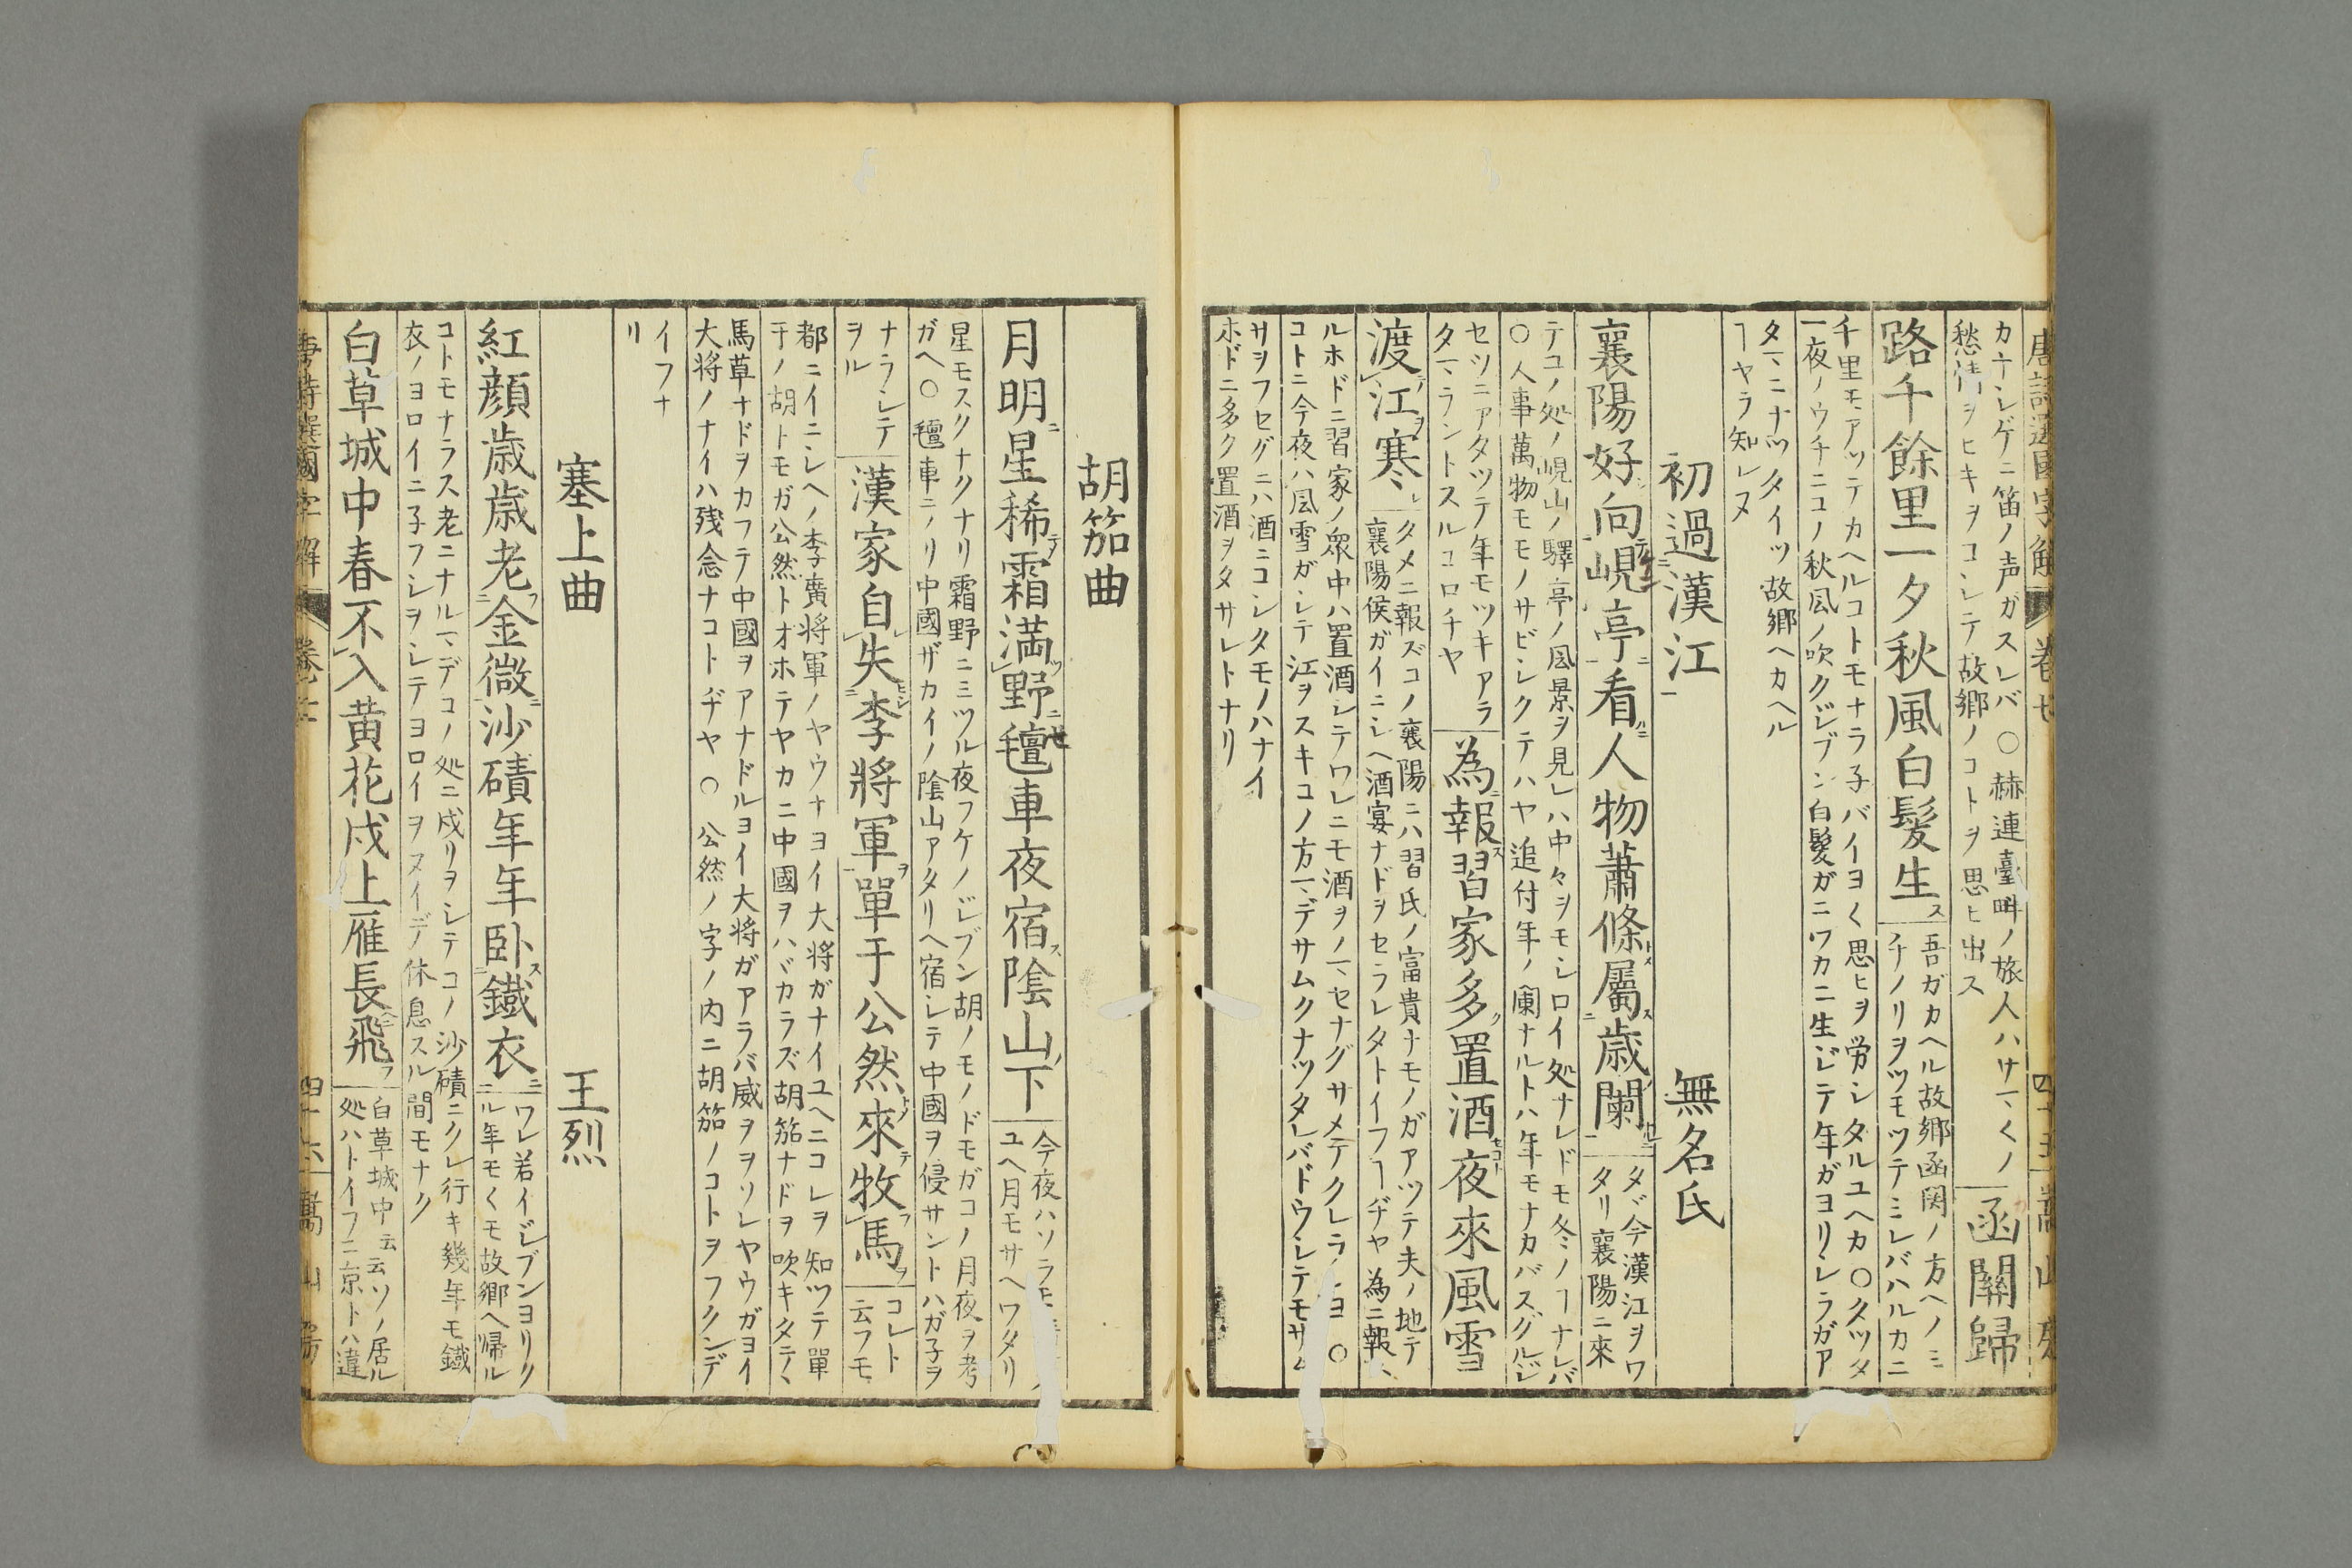 唐詩選國字解 卷七 四十五 嵩山房
カナシゲニ笛ノ声ガスレバ○赫連臺畔ノ旅人ハサマ〱ノ
愁情ヲヒキヲコシテ故郷ノコトヲ思ヒ出ス
函關歸
路千餘里一夕秋風白髮生
吾ガカヘル故郷函関ノ方ヘノミ
チノリヲツモツテミレバハルカニ
千里モアツテカヘルコトモナラ子バイヨ〱思ヒヲ労シタルユヘカ○クツタ
一夜ノウチニコノ秋風ノ吹クジブン白髪ガニワカニ生ジテ年ガヨリ
タマニナツタイツ故郷ヘカヘル
ヿヤラ知レヌ
初過漢江 無名氏
襄陽好向峴亭看人物蕭條屬歳闌
タヾ今漢江ヲワ
タリ襄陽ニ來
テコノ処ノ峴山ノ驛亭ノ風景ヲ見レハ中々ヲモシロイ処ナレドモ冬ノヿナレバ
○人事萬物モモノサビシクテハヤ追付年ノ闌ナルトハ年モナカバスグルジ
セツニアタツテ年モツキアラ
タマラントスルコロチヤ
為報習家多置酒夜來風雪
渡江寒
タメニ報ズコノ襄陽ニハ習氏ノ富貴ナモノガアツテ夫ノ地テ
襄陽侯ガイニシヘ酒宴ナドヲセラレタトイフヿヂヤ為ニ報
ルホドニ習家ノ衆中ハ置酒シテワレニモ酒ヲノマセナグサメテクレラ ヨ○
コトニ今夜ハ風雪ガシテ江ヲスキコノ方マデサムクナツタレバドウシテモサム
サヲフセグニハ酒ニコシタモノハナイ
ホドニ多ク置酒ヲタサレトナリ
胡笳曲
月明星稀霜満野氊車夜宿陰山下
今夜ハソラモ
ユヘ月モサヘワタリ
星モスクナクナリ霜野ニミツル夜フケノジブン胡ノモノドモガコノ月夜ヲ考
ガヘ○氊車ニノリ中國ザカイノ陰山アタリヘ宿シテ中國ヲ侵サントハガ子ヲ
ナラシテ
ヲル
漢家自失李將軍單于公然來牧馬
コレト
云フモ
都ニイニシヘノ李廣将軍ノヤウナヨイ大将ガナイユヘニコレヲ知ツテ單
于ノ胡トモガ公然トオホテヤカニ中國ヲハヾカラズ胡笳ナドヲ吹キタテヽ
馬草ナドヲカフテ中國ヲアナドルヨイ大将ガアラバ威ヲヲソレヤウガヨイ
大将ノナイハ残念ナコトヂヤ○公然ノ字ノ内ニ胡笳ノコトヲフクンデ
イフナ
リ
塞上曲 王烈
紅顔歳歳老金微沙磧年年卧鐵衣
ワレ若イジブンヨリク
ル年モ〱モ故郷ヘ帰ル
コトモナラス老ニナルマデコノ処ニ戍リヲシテコノ沙磧ニクレ行キ幾年モ鐵
衣ノヨロイニ子フシヲシテヨロイヲヌイデノ休息スル間モナク
白草城中春不入黄花戍上雁長飛
白草城中云云ソノ居ル
処ハトイフニ京トハ違
唐詩選國字解 卷七 四十六 嵩山房